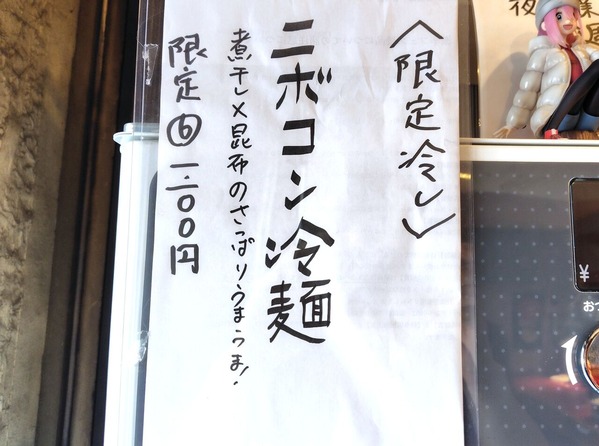 〈限定冷し〉
ニボコン冷麺
煮干し×昆布のさっぱりうまうま!
限定⑥ 一.二〇〇円
夜
業
¥
おつ